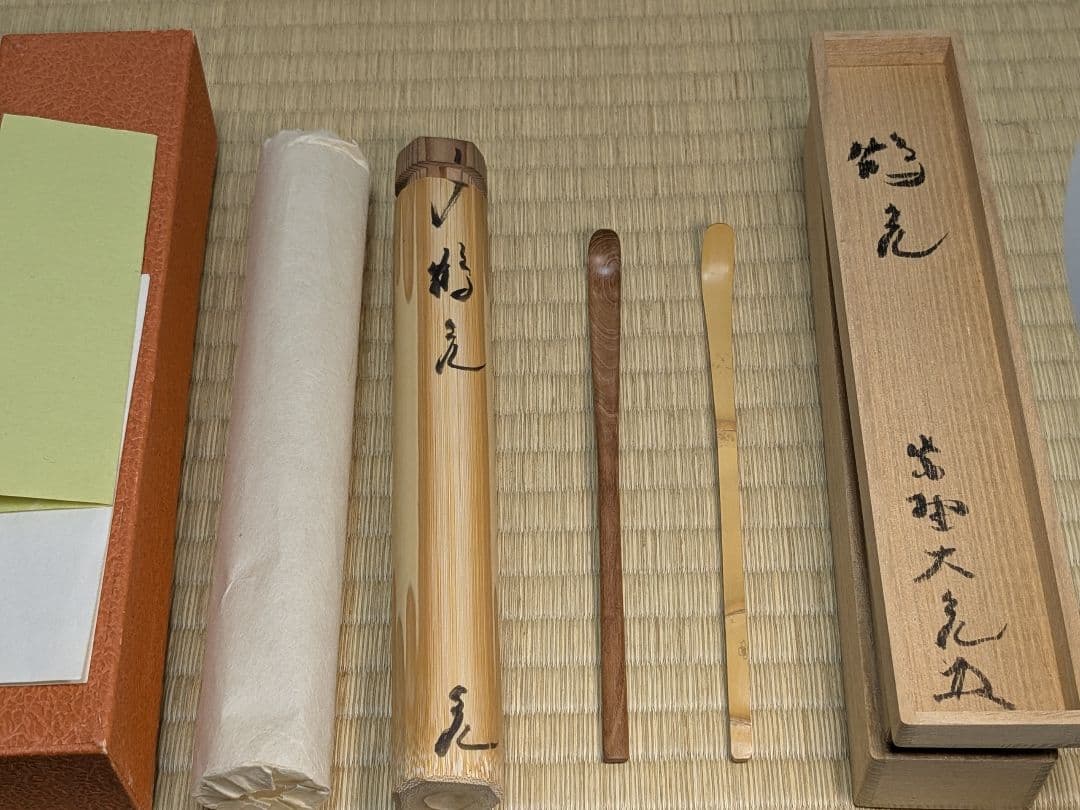 鶴亀
亀
鶴亀
紫野大亀